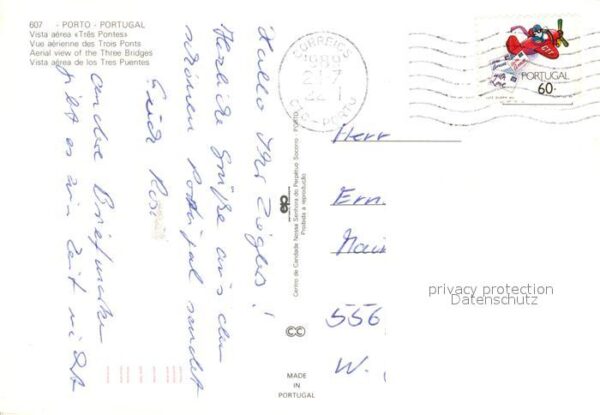 607 - PORTO - PORTUGAL
Vista aérea «Três Pontes»
Vue aérienne des Trois Ponts
Aerial view of the Three Bridges
Vista aérea de los Tres Puentes
Hallo Ihr
Herzliche Grüße aus dem
schönen Portugal sendet
Euch Rosi
andere Briefmarken
gibt es zur Zeit nicht
Centro de Caridade Nossa Senhora do Perpétuo Socorro - PORTO
Proibida a reprodução
MADE
IN
PORTUGAL
CORREIOS
1989
PORTO
PORTUGAL
60.-
Herr
Ern
556
W.
privacy protection
Datenschutz